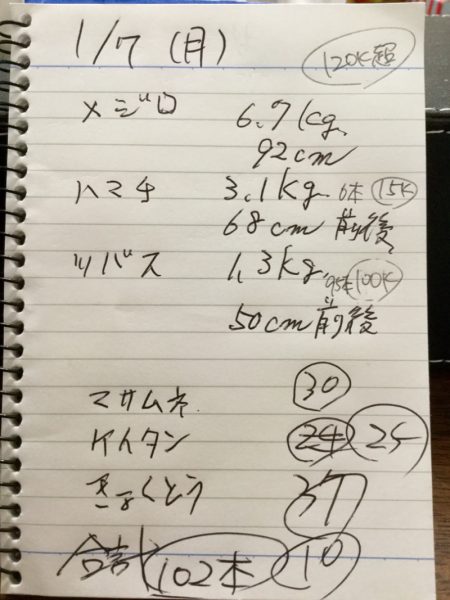 1/7 (月) 120K超
メジロ 6.7kg.
92cm
ハマチ 3.1kg. 6本 15K
68cm 前後
ツバス 1.3kg. 95本 100K
50cm 前後
マサムネ 30
ケイタン 24 25
きょくとう 37
合計 102本 10